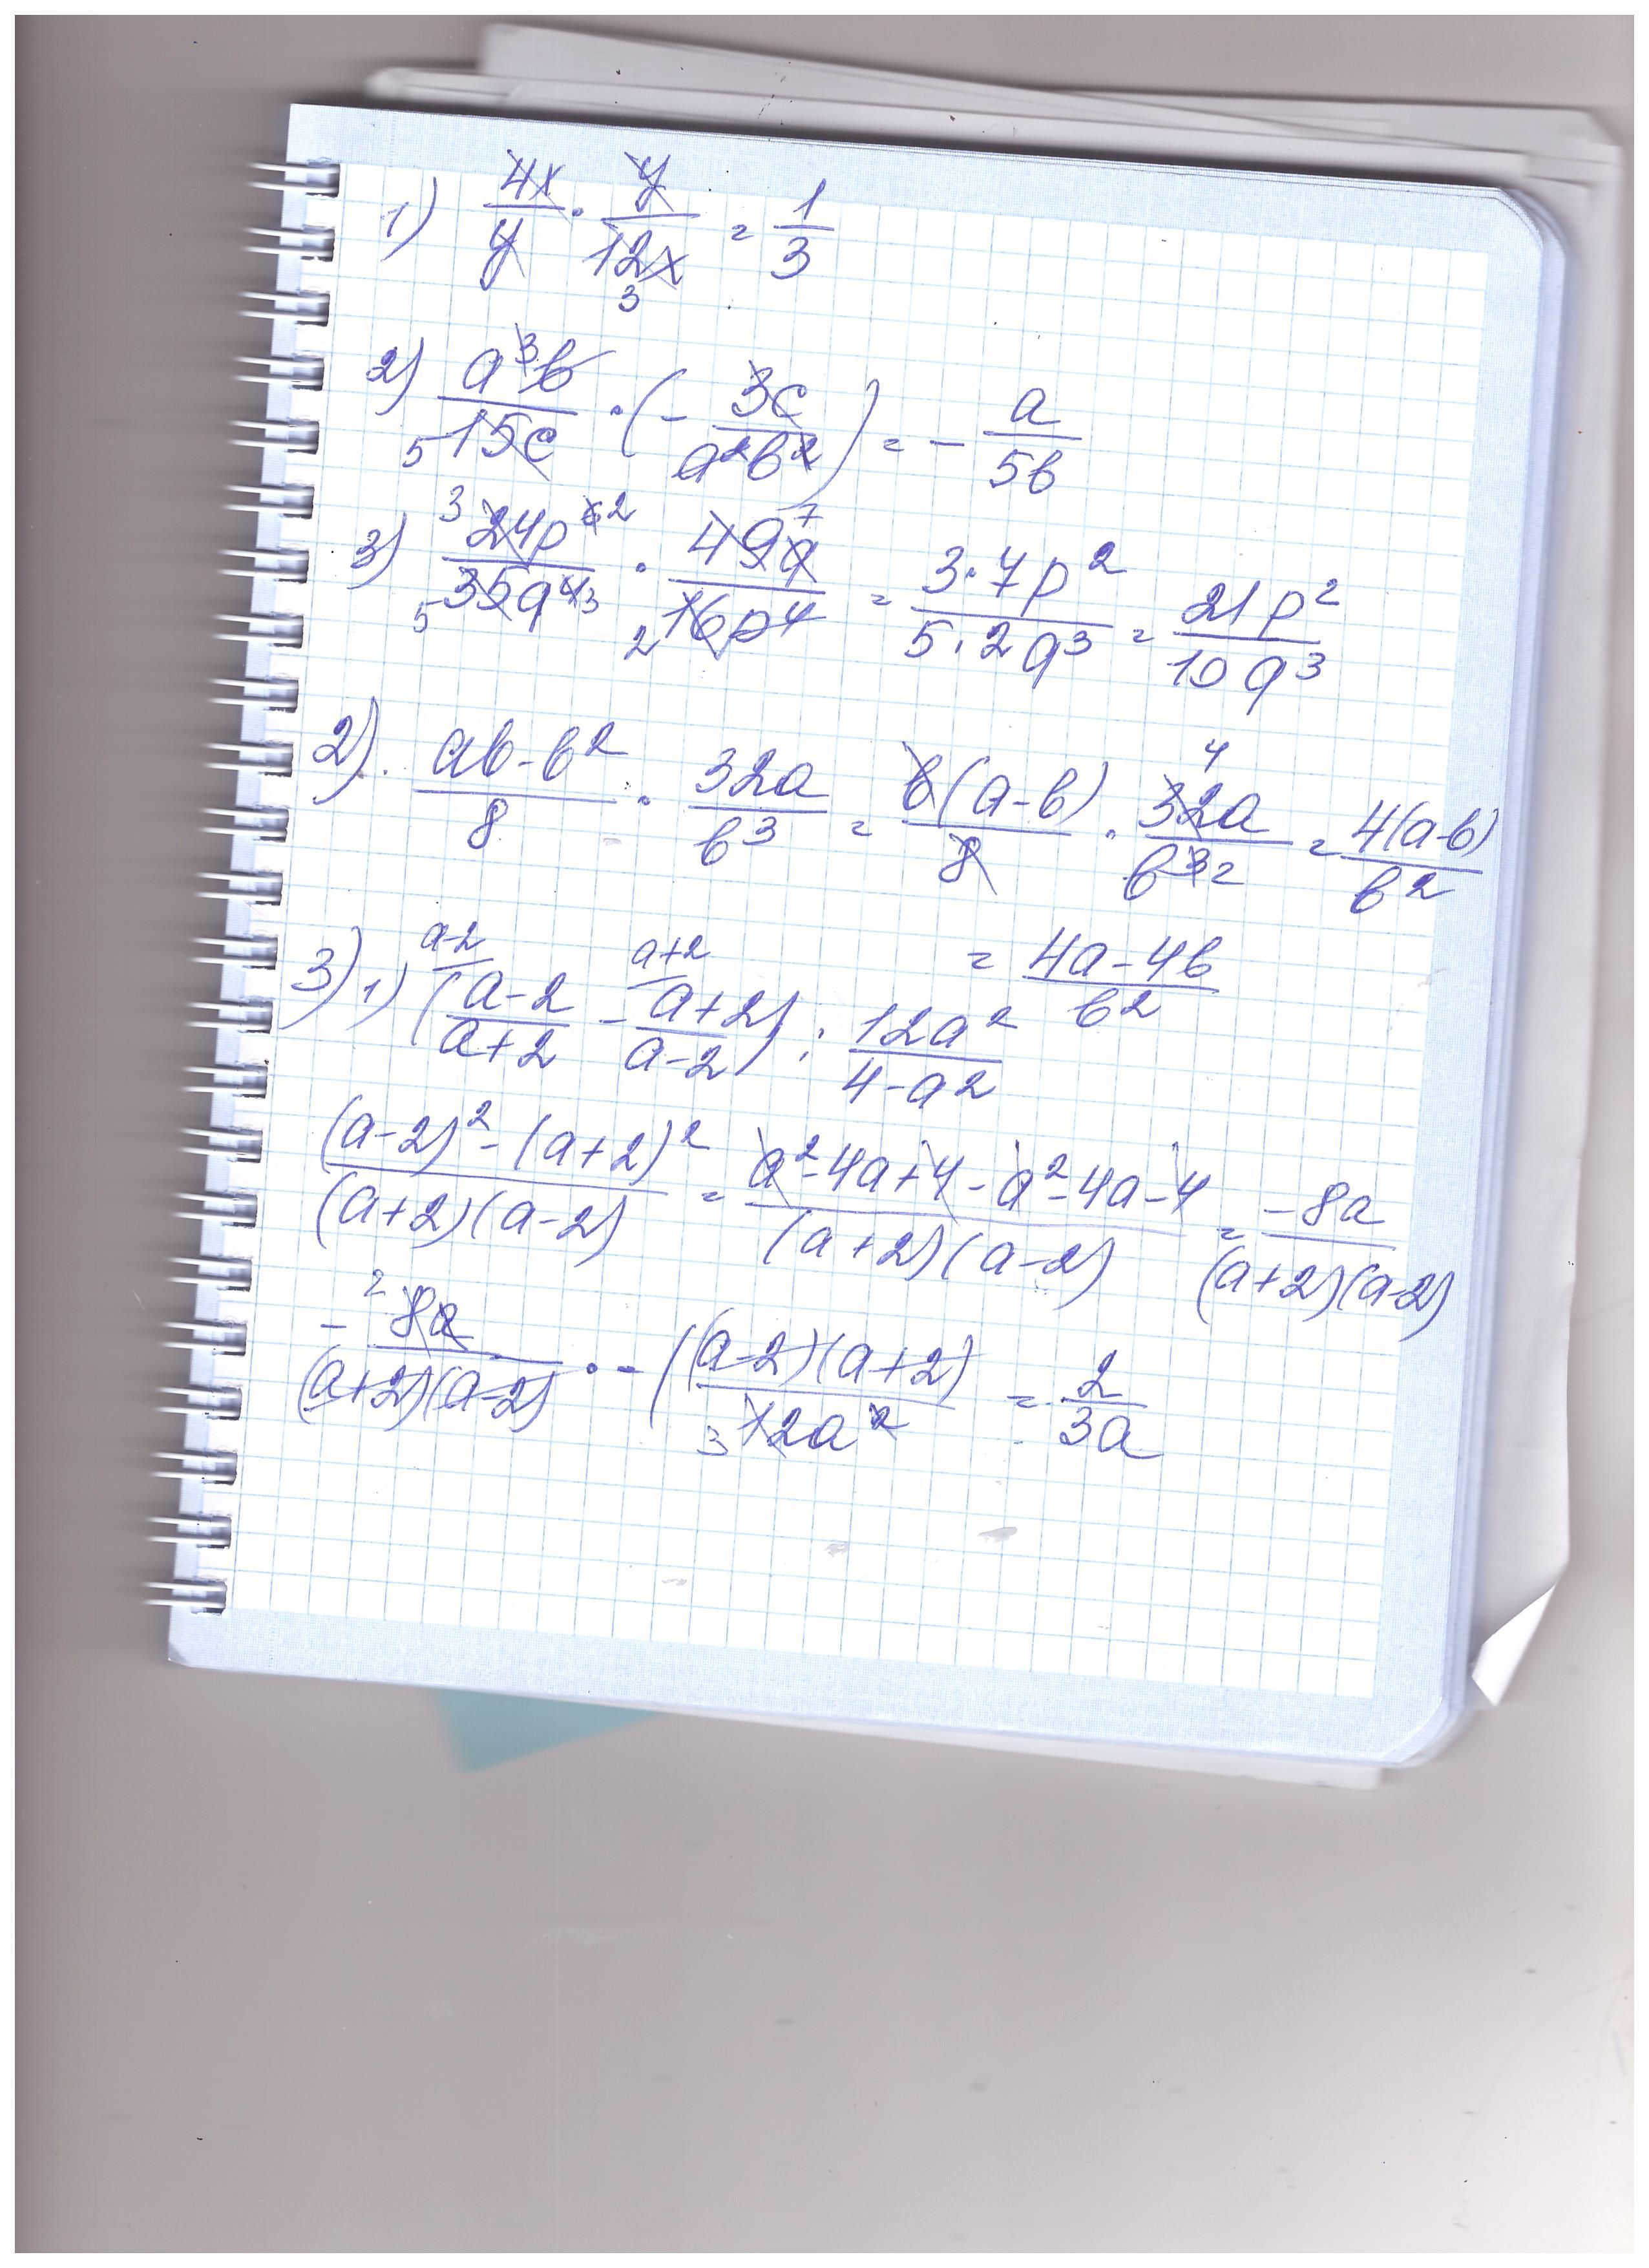 1) 4x/y · y/12x = 1/3
3
2) a³b/15c · (- 3c/a²b²) = - a/5b
5
3) 24p⁶/35q⁴ · 49q/16p⁴ = 3·7p²/5·2q³ = 21p²/10q³
3 2 7 5 3 2
2) ab-b²/8 · 32a/b³ = b(a-b)/8 · 32a/b³ = 4(a-b)/b²
4 2
= 4a-4b/b²
a-2 a+2
3) 1) (a-2/a+2 - a+2/a-2) : 12a²/4-a²
(a-2)²-(a+2)²/(a+2)(a-2) = a²-4a+4-a²-4a-4/(a+2)(a-2) = -8a/(a+2)(a-2)
2
- 8a/(a+2)(a-2) · -((a-2)(a+2)/12a²) = 2/3a
3